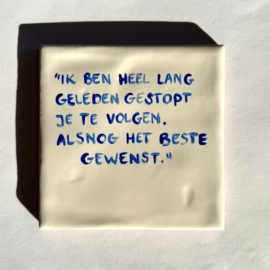 "IK BEN HEEL LANG
GELEDEN GESTOPT
JE TE VOLGEN.
ALSNOG HET BESTE
GEWENST."